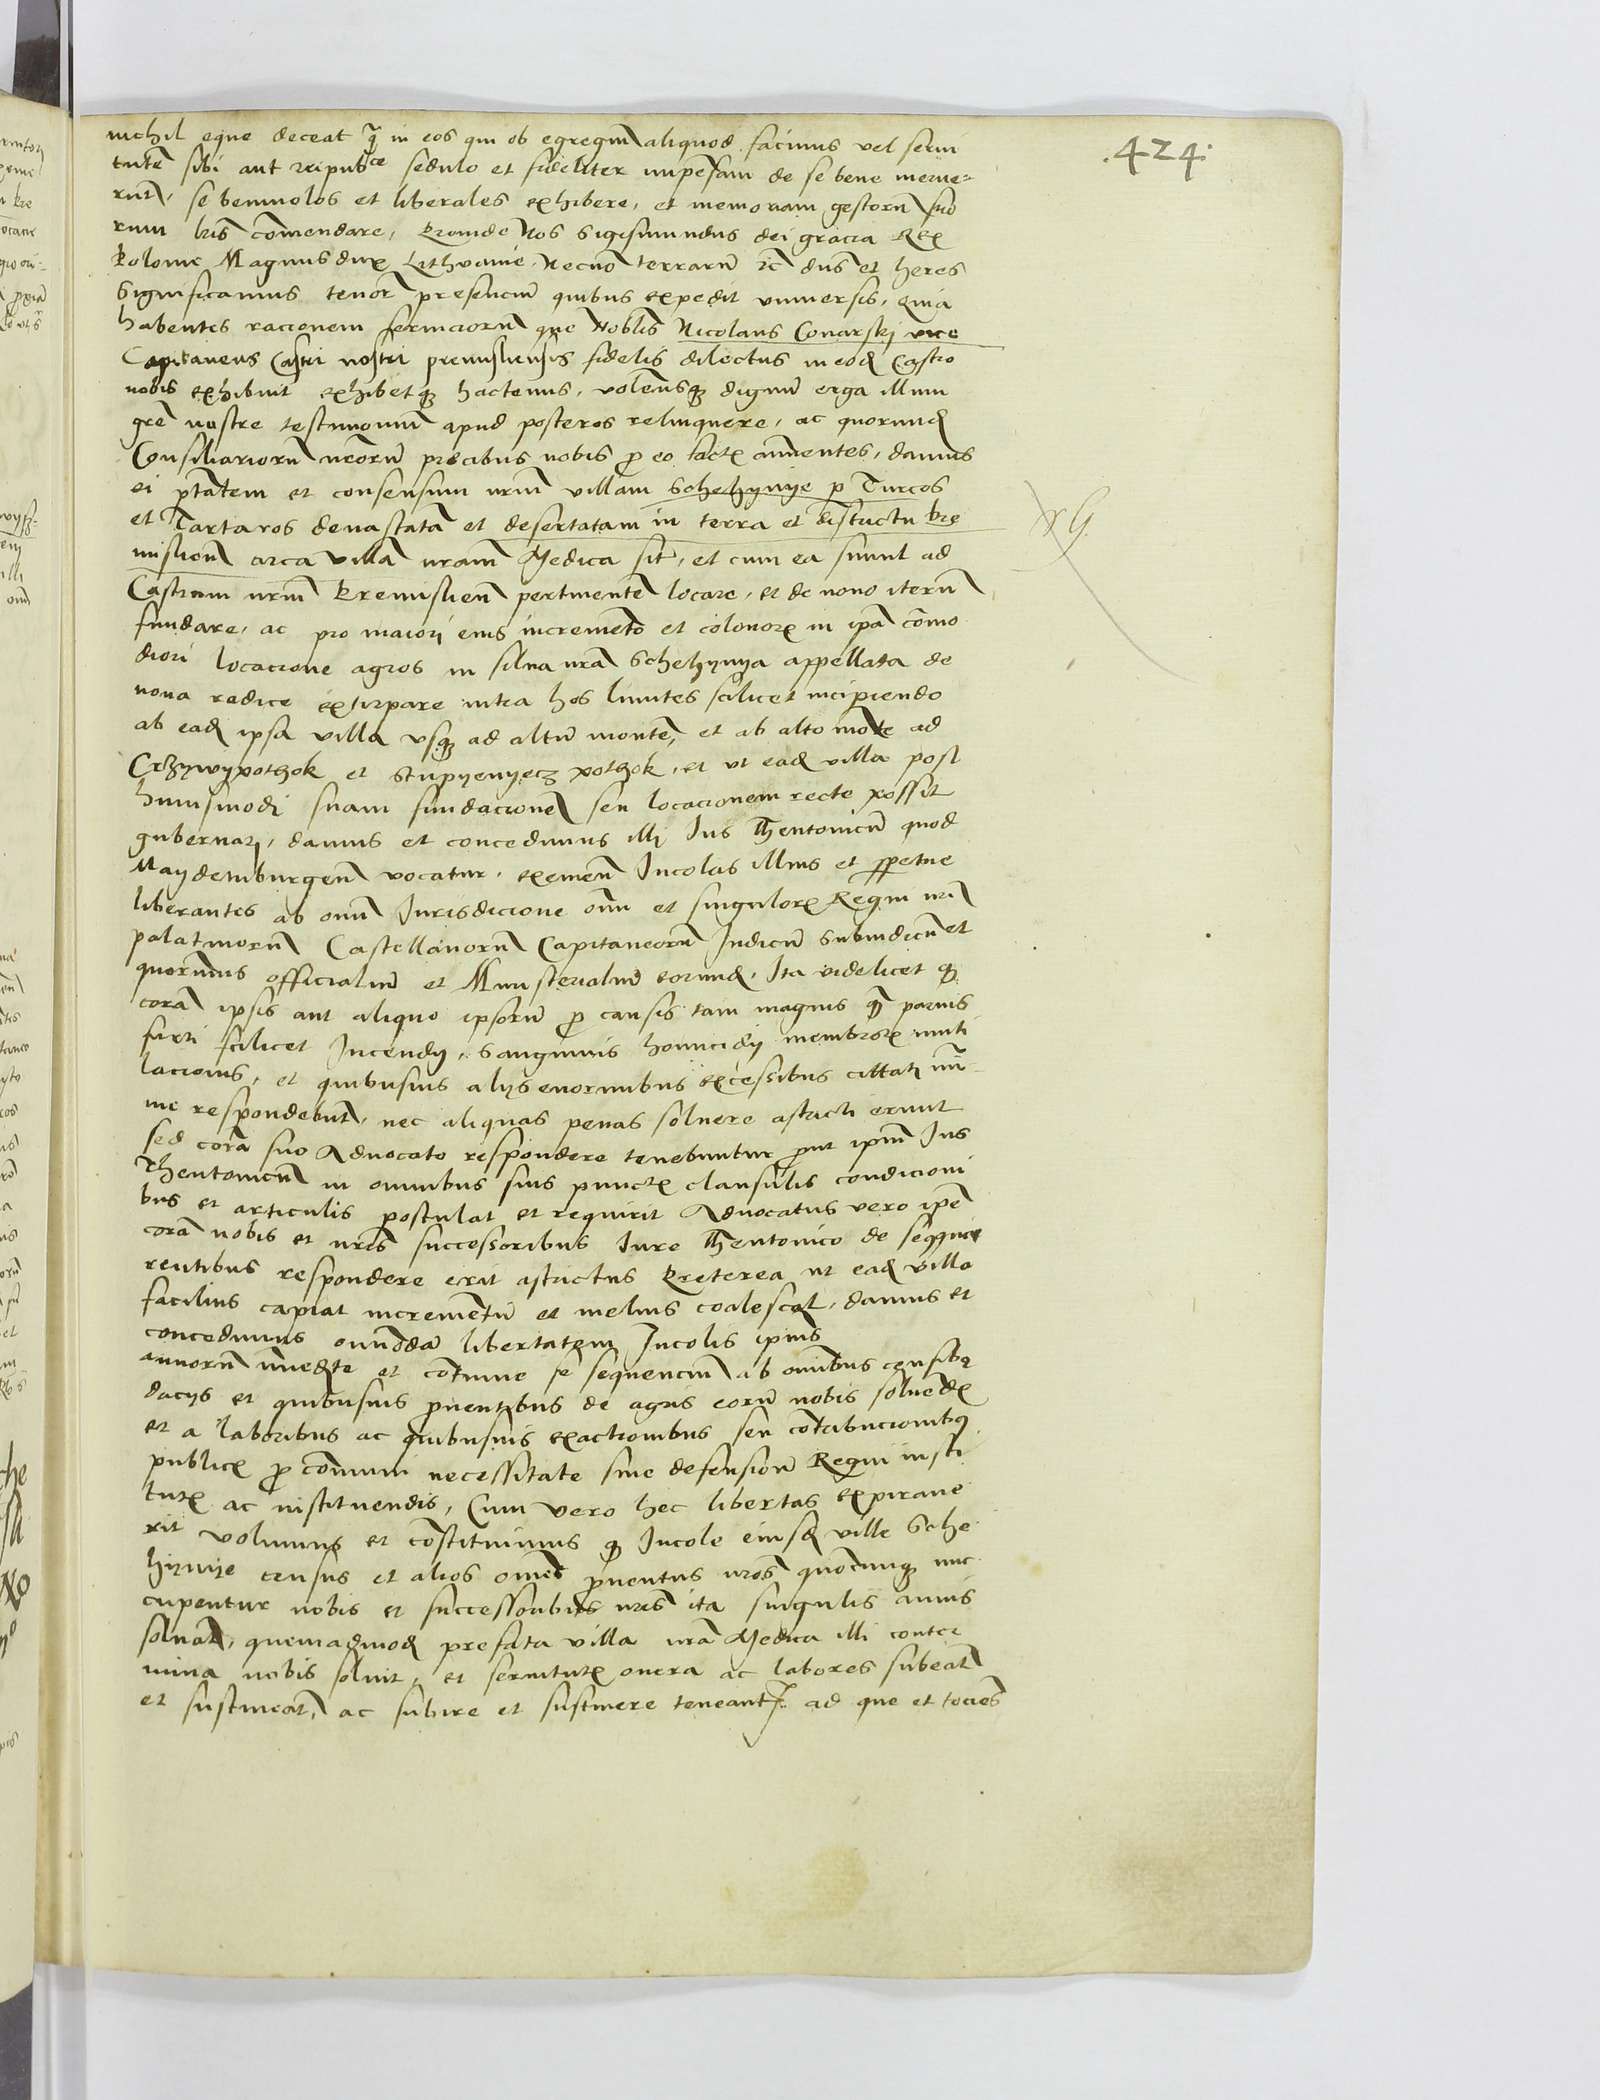 .424.
nichil eque deceat q̃ in eos qui ob egregiũ aliquod facinus vel servi
tutẽ sibi aut reipub.ce sedulo et fideliter impẽsam de se bene merue-
runt, se beniuolos et liberales exhibere, et memoriam gestorũ suo
rum lris cõmendare, Proinde Nos Sigismundus dei gracia Rex
Polonie Magnus dux Lithuanie, Necnõ terrarũ etc dñs et heres
Significamus tenor presencium quibus expedit vniuersis, Quia
habentes racionem seruiciorũ que Noblis Nicolaus Conarskj vice
Capitaneus Castri nostri premisliensis fidelis dilectus in eod Castro
nobis exhibuit exhibetq hactenus, volensq dignũ erga illum
grẽ nostre testimoniũ apud posteros relinquere, ac quorund
Consiliariorũ nrorũ precibus nobis p eo fact annuentes, damus
ei ptatem et consensum nrm villam Schehynye p Turcos
et Tartaros deuastatã et desertatam in terra et districtu Pre
mislien circa villã nram Medica sit, et cum ea simul ad
Castrum nrm Premislieñ pertinentẽ locare, et de nouo iterũ
fundare, ac pro maiorj eius incremẽto et colonor in ipa cõmo
diori locacione agros in silua nra Schehynya appellata de
noua radice extirpare intra hos limites scilicet incipiendo
ab ead ipsa villa vsq ad altũ montẽ, et ab alto mõte ad
Crzywypothok et Stupyenyecz pothok, et vt ead villa post
huiusmodi suam fundacionẽ seu locacionem recte possit
gubernarj, damus et concedimus illj Ius Theutonicũ quod
Maydemburgeñ vocatur, eximen Incolas illius et ppetue
liberantes ab omni Iurisdicione oĩm et singulor Regni nrj
palatinorũ Castellanorũ Capitaneorũ Iudicũ Subiudicũ et
quorumuis officialiũ et Ministerialiũ eorund, Ita videlicet q
corã ipsis aut aliquo ipsorũ p causis tam magnis q̃ paruis
furti scilicet Incendij, Sanguinis homicidij membror muti
lacionis, et quibusuis alijs enormibus excessibus citatj mi
me respondebũt, nec aliquas penas soluere astricti erunt
sed corã suo Aduocato respondere tenebuntur put ipm Ius
Theutonicũ in omnibus suis punct clausulis condicioni
bus et articulis postulat et requirit Aduocatus vero ipe
corã nobis et nris successoribus Iure Theutonico de se que
rentibus respondere erit astrictus Preterea vt ead villa
facilius capiat incremẽtũ et melius coalescat, damus et
concedimus oĩmodã libertatem Incolis ipius
annorũ imediate et cõtinue se sequenciũ ab omnibus censibq
dacijs et quibusuis puentibus de agris eorũ nobis soluẽd
et a laboribus ac quibusuis exactionibus seu cõtribucionibq
public p cõmuni necessitate siue defensione Regni insti
tut ac instituendis, Cum vero hec libertas expiraue
rit volumus et cõstituimus q Incole eiusd ville Sche
hynye census et alios omẽs puentus nros quocunq nuc
cupentur nobis et successoribus nris ita singulis annis
soluãt, quemadmod prefata villa nra Medica illi conter
mina nobis soluit, et seruitut onera ac labores subeãt
et sustineãt, ac subire et sustinere teneantr ad que et tociẽs